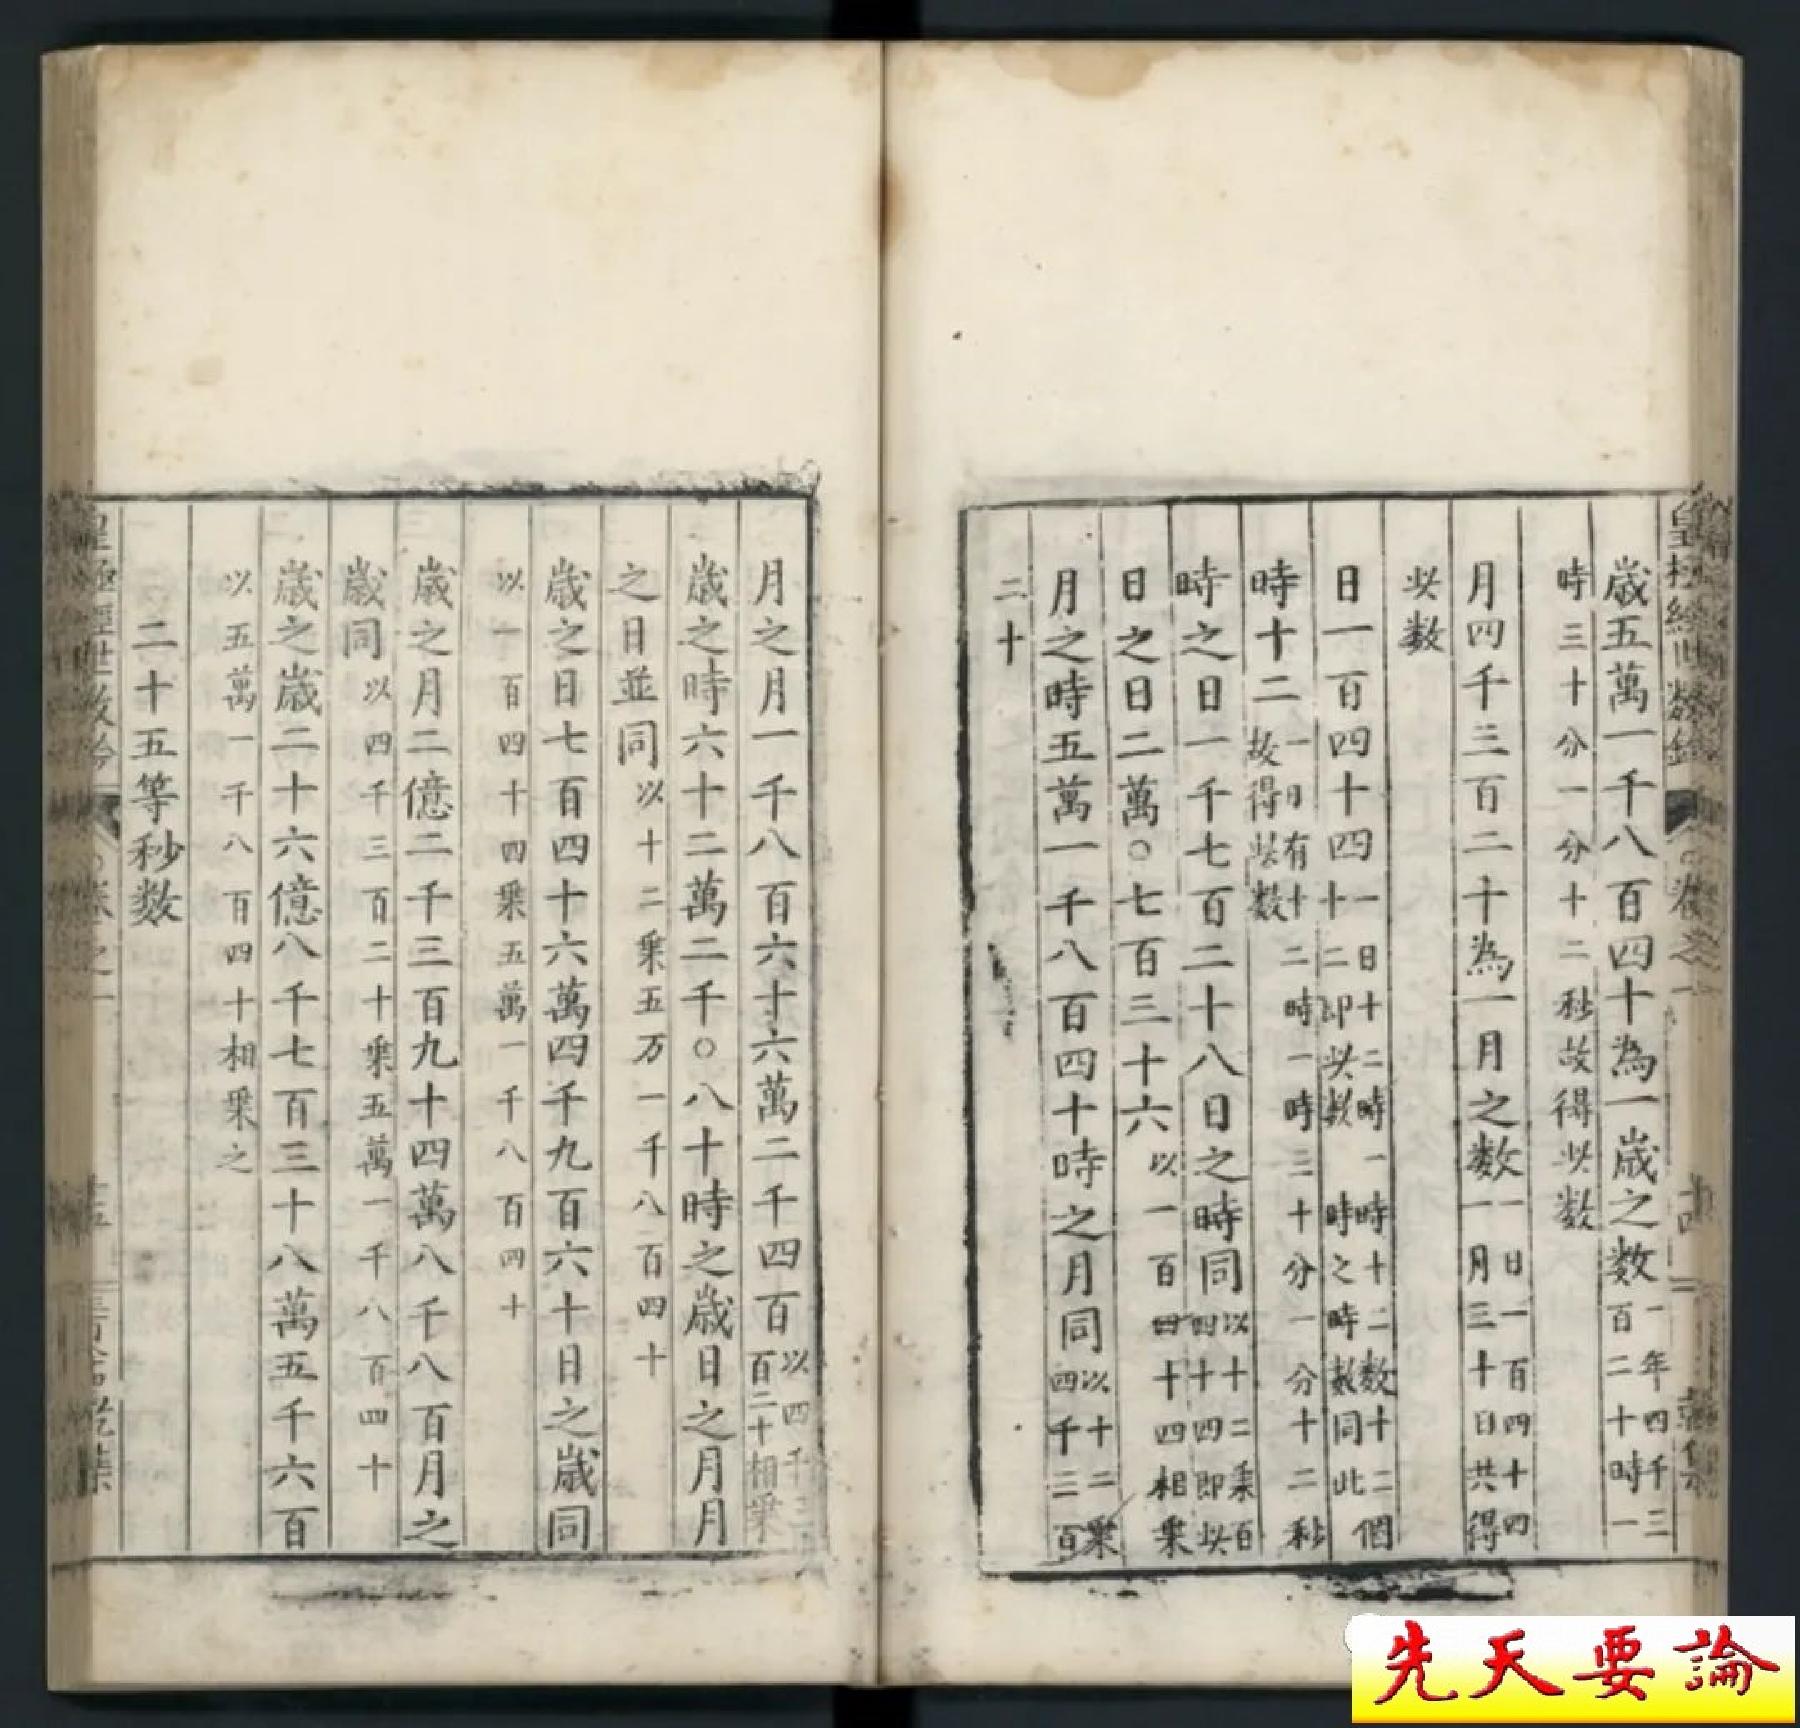 皇極經世數鈐 卷之一
歲五萬一千八百四十為一歲之数一年四千三百二十時一
時三十分一分十二秒故得此数
月四千三百二十為一月之数一日一百四十四一月三十日共得
此数
日一百四十四一日十二時一時十二数十二個十二即此数時之時数同此
時十二一日有十二時一時三十分一分十二秒故得此数
時之日一千七百二十八日之時同以十二乘百四十四即此
日之日二萬○七百三十六以一百四十四相乘
月之時五萬一千八百四十時之月同以十二乘四千三百
二十
月之月一千八百六十六萬二千四百以四千三百二十相乘
歲之時六十二萬二千○八十時之歲日之月月
之日並同以十二乘五万一千八百四十
歲之日七百四十六萬四千九百六十日之歲同
以一百四十四乘五萬一千八百四十
歲之月二億二千三百九十四萬八千八百月之
歲同以四千三百二十乘五萬一千八百四十
歲之歲二十六億八千七百三十八萬五千六百
以五萬一千八百四十相乘之
二十五等秒数
先天要論